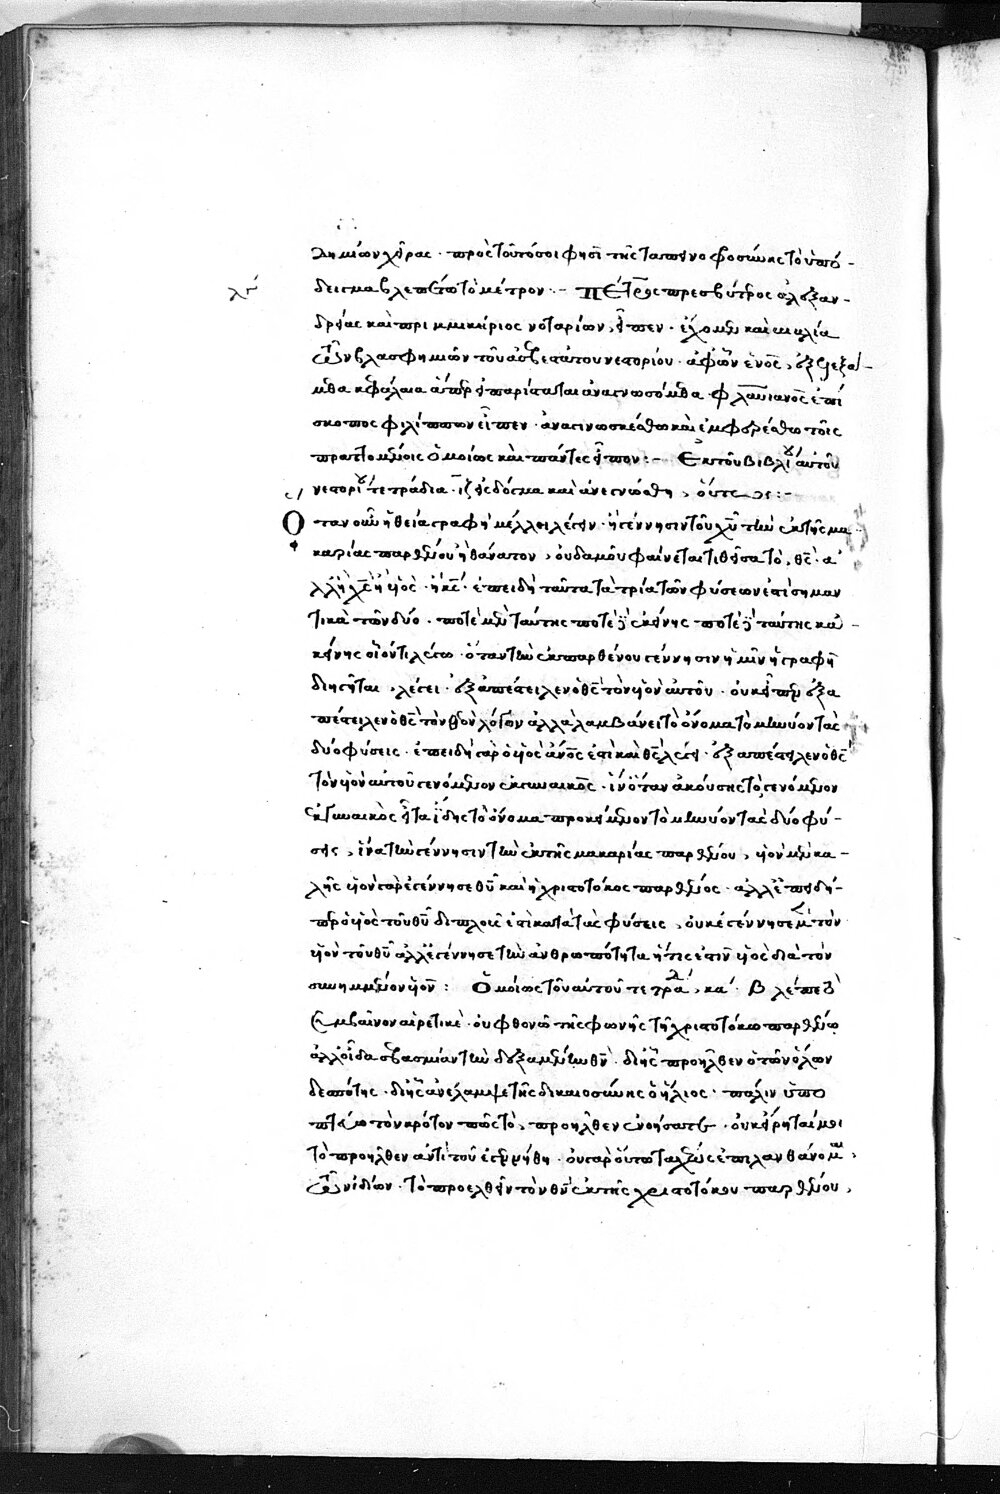 λημίων χῆρας · πρὸς τοῦτό σοι φησὶ τῆς ταπεινοφροσύνης τὸ ὑπό-
δειγμα βλεπέτω τὸ μέτρον :- Πέτρος πρεσβύτερος ἀλεξαν-
δρείας καὶ πριμμικήριος νοταρίων, εἶπεν · ἔχομεν καὶ βιβλία
τῶν βλασφημιῶν τοῦ ἀσεβεστάτου νεστορίου · ἀφ' ὧν ἑνὸς, ἐξελεξά-
μεθα κεφάλαια ἅπερ εἰ παρίσταται ἀναγνωσόμεθα · φλαυιανὸς ἐπί
σκοπος φιλίππων εἶπεν · ἀναγινωσκέσθω καὶ ἐμφερέσθω τοῖς
πραττομένοις ὁμοίως καὶ πάντες εἶπον :- Ἐκ τοῦ βιβλίου αὐτοῦ
νεστορίου τετράδια · ιζ εἰς δόγμα καὶ ἀνεγνώσθη, οὕτως :-
Ὅταν οὖν ἡ θεία γραφὴ μέλλει λέγειν · ἢ γέννησιν τοῦ χυ τὴν ἐκ τῆς μα
καρίας παρθένου ἢ θάνατον, οὐδαμοῦ φαίνεται τιθεῖσα τὸ, θς · ἀ
λλ' ἢ χς ἢ υἱὸς · ἢ κς · ἐπειδὴ ταῦτα τὰ τρία τῶν φύσεων ἐστὶ σημαν
τικὰ τῶν δύο · ποτὲ μὲν ταύτης ποτὲ δὲ ἐκείνης ποτὲ δὲ ταύτης κα-
κείνης οἷόν τι λέγω · ὅταν τὴν ἐκ παρθένου γέννησιν ἡμῖν ἡ γραφὴ
διηγῆται, λέγει · ἐξαπέστειλεν ὁ θς τὸν υἱὸν αὐτοῦ · οὐκ εἶπεν ἐξα
πέστειλεν ὁ θς τὸν θν λόγον ἀλλὰ λαμβάνει τὸ ὄνομα τὸ μηνύον τὰς
δύο φύσεις · ἐπειδὴ γὰρ ὁ υἱὸς ἄνος ἐστὶ καὶ θς λέγει · ἐξαπέστειλεν ὁ θς
τὸν υἱὸν αὐτοῦ γενόμενον ἐκ γυναικὸς · ἵν' ὅταν ἀκούσῃς τὸ, γενόμενον
ἐκ γυναικὸς εἶτα ἴδῃς τὸ ὄνομα προκείμενον τὸ μηνύον τὰς δύο φύ-
σεις, ἵνα τὴν γέννησιν τὴν ἐκ τῆς μακαρίας παρθένου, υἱοῦ μὲν κα-
λῇς υἱὸν γὰρ ἐγέννησε θυ καὶ ἡ χριστοτόκος παρθένος · ἀλλ' ἐπειδή-
περ ὁ υἱὸς τοῦ θυ διπλοῦς ἐστὶ κατὰ τὰς φύσεις, οὐκ ἐγέννησε μὲν τὸν
υἱὸν τοῦ θυ ἀλλ' ἐγέννησε τὴν ἀνθρωπότητα ἥτις ἐστὶν υἱὸς διὰ τὸν
συνημμένον υἱὸν : Ὁμοίως τοῦ αὐτοῦ τετρά, κα · Βλέπε τὸ
συμβαῖνον αἱρετικὲ · οὐ φθονῶ τῆς φωνῆς τῇ χριστοτόκῳ παρθένῳ
ἀλλ' οἶδα σεβασμίαν τὴν δεξαμένην θν · δι' ἧς προῆλθεν ὁ τῶν ὅλων
δεσπότης · δι' ἧς ἀνέλαμψε τῆς δικαιοσύνης ὁ ἥλιος · πάλιν ὑπο
πτεύω τὸν κρότον πῶς τὸ, προῆλθεν ἐνοήσατε · οὐκ εἴρηταί μοι
τὸ προῆλθεν ἀντὶ τοῦ ἐγεννήθη · οὐ γὰρ οὕτω ταχέως ἐπιλανθάνομαι,
τῶν ἰδίων · τὸ προελθεῖν τὸν θν ἐκ τῆς χριστοτόκου παρθένου,